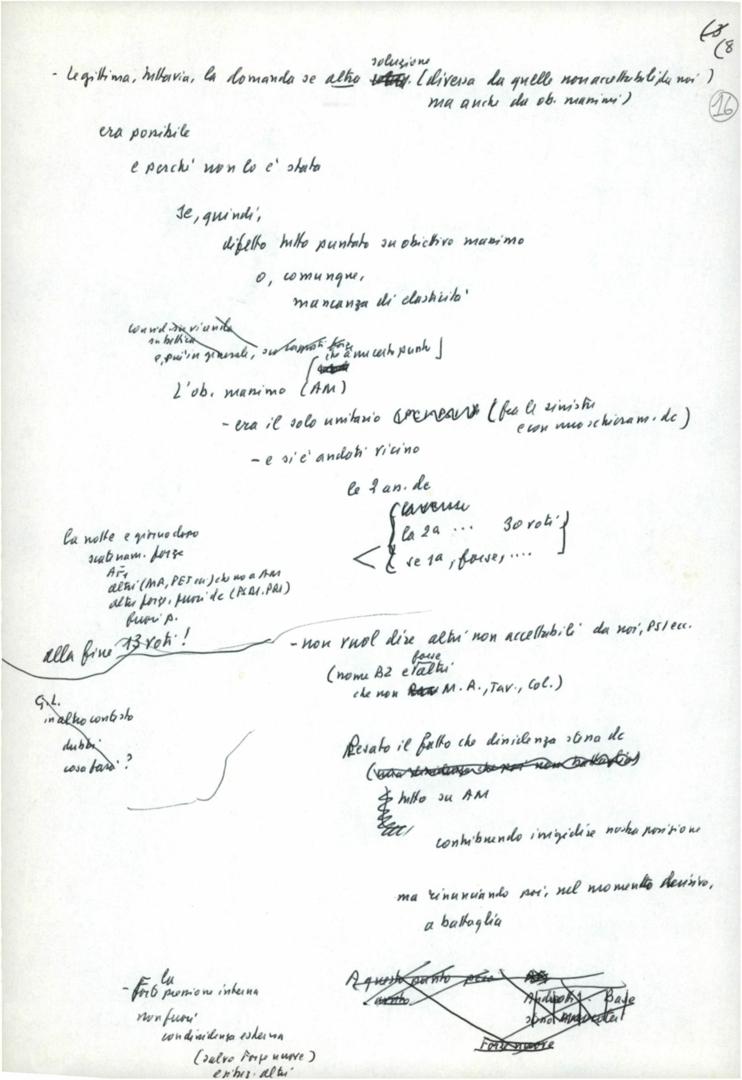 (8
16
soluzione
- Legittima, tuttavia, la domanda se altra (diversa da quelle non accettabili da noi)
ma anche da ob. massimi)
era possibile
e perchè non lo è stata
Se, quindi,
difetto tutto puntato su obiettivo massimo
o, comunque,
mancanza di elasticità
e, più in generale, su rapporti forze
che a un certo punto
L'ob. massimo (AM)
- era il solo unitario (fra le sinistre
e con suo schieram. dc)
- e si è andati vicino
le 2 as. dc
la 2a ... 30 voti
se 1a, forse, ....
la notte e giorno dopo
scatenam. forze
altri (MA, PET ecc) che no a AM
altre forze, fuori dc (PSDI. PRI)
fuori P.
alla fine 13 voti!
- non vuol dire altri non accettabili da noi, PSI ecc.
forse
(nome BZ e altri
che non M.A., Tav., Col.)
G.L.
in altro contesto
dubbi
cosa farà?
Pesato il fatto che dissidenza sinistra dc
tutto su AM
contribuendo irrigidire nostra posizione
ma rinunciando poi, nel momento decisivo,
a battaglia
la
- pressione interna
non fuori
con dissidenza esterna
(salvo Forze nuove)
A questo punto però
Andreotti - Base
Forze nuove